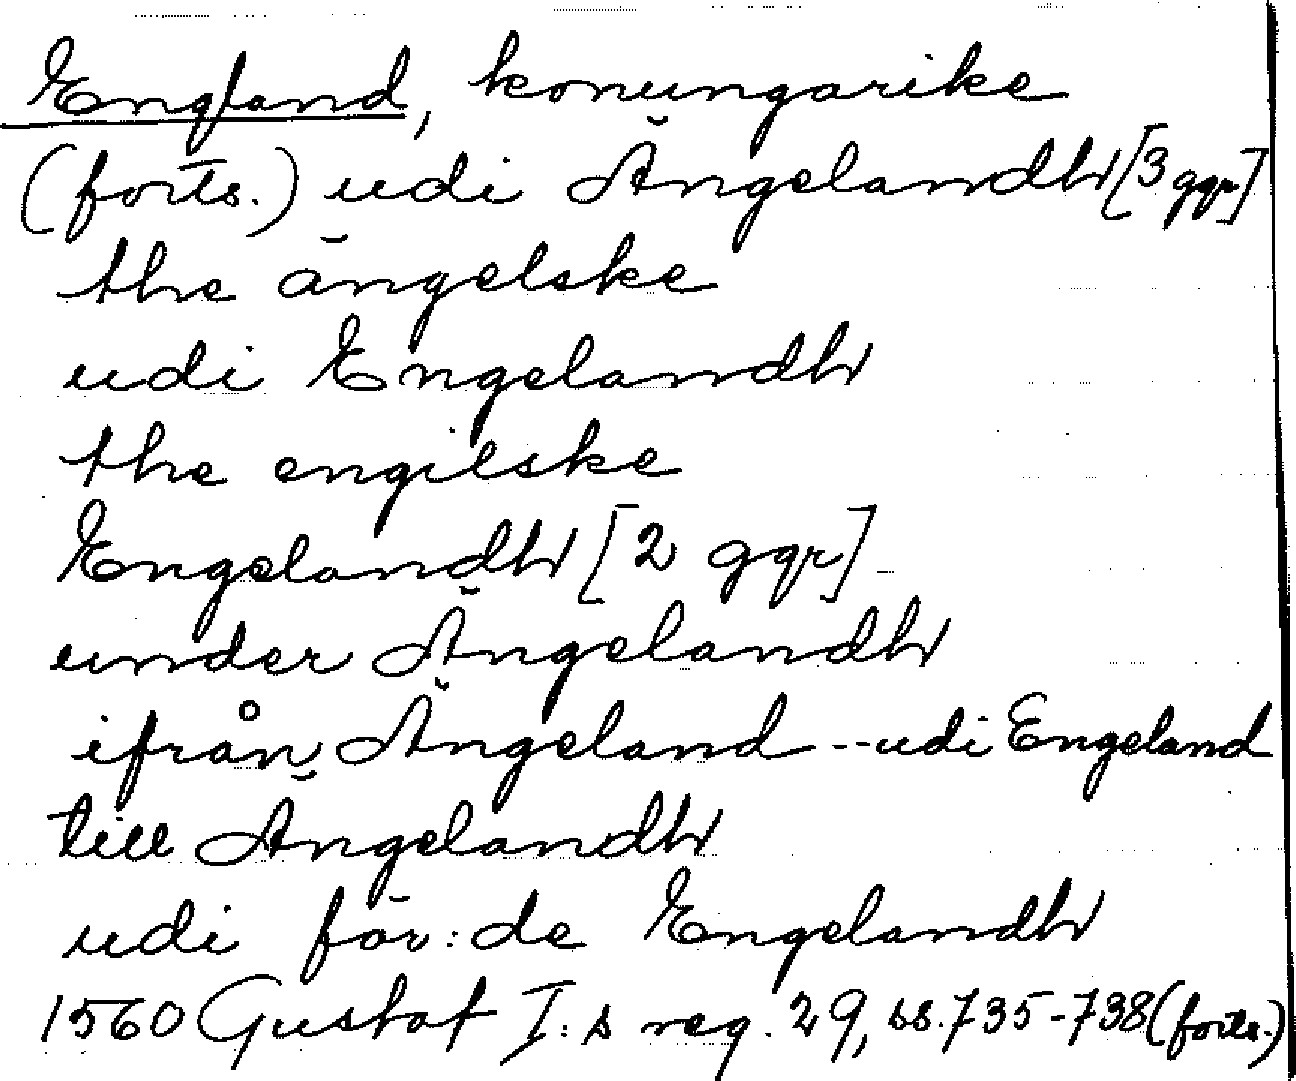 England, konungarike
(forts.) udi Ängelandh [3 ggr]
the ängelske
udi Engelandh
the engilske
Engelandh [2 ggr]
under Ängelandh
ifrån Ängeland -- udi Engeland
till Ängelandh
udi för:de Engelandh
1560 Gustaf I:s reg. 29, ss. 735-738 (forts.)